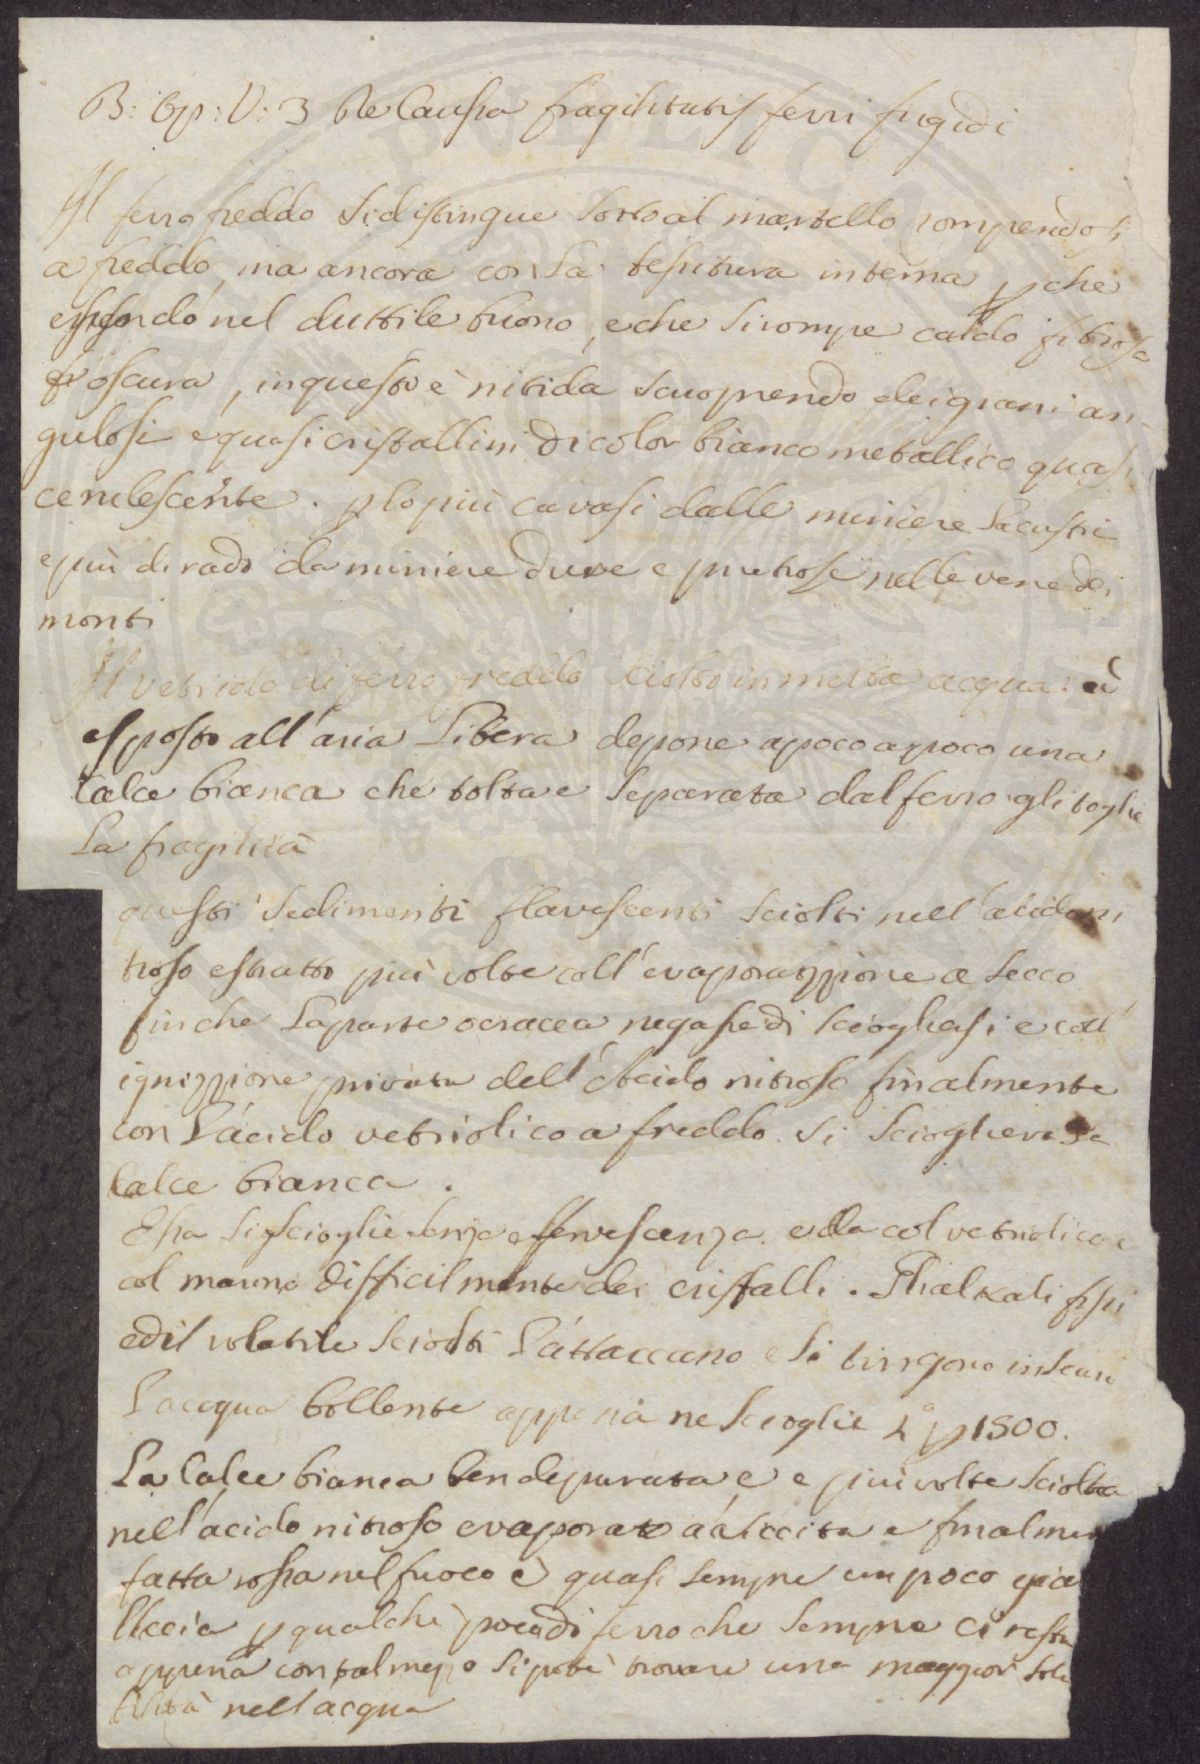 B: Op: V: 3 De Causa fragilitatis ferri frigidi
Il ferro freddo si distingue sotto al martello rompendosi
a freddo, ma ancora con la tessitura interna p che
essendo nel duttile buono, e che si rompe caldo fibrosa
oscura, in questo è nitida scuoprendo dei grani an-
gulosi e quasi cristallini di color bianco metallico quasi
cerulescente. p lo più cavasi dalle miniere lacustri
e più di rado da miniere dure e pietrose nelle vene dei
monti
Il vetriolo di ferro freddo sciolto in molta acqua ed
esposto all'aria libera depone a poco a poco una
Calce bianca che tolta e separata dal ferro gli toglie
la fragilità
questi sedimenti flavescenti sciolti nell'acido ni
troso estratto più volte coll'evaporazzione a secco
finche la parte ocracea negasse di sciogliersi e coll'
ignizzione privata dell'Acido nitroso finalmente
con l'acido vetriolico a freddo si scioglieva la
Calce bianca.
Essa si scioglie senza effervescenza e dà col vetriolico e
col marino difficilmente dei cristalli. Gli alkali fissi
ed il volatile sciolti l'attaccano e si tingono
l'acqua bollente appena ne scioglie 1 p 1500.
La Calce bianca ben depurata e e più volte sciolta
nell'acido nitroso evaporato a siccità e finalmen
fatta rossa nel fuoco è quasi sempre un poco gia
lliccia p qualche poco di ferro che sempre ci resta
appena con tal mezzo si potè trovare una maggior solu
bilità nell'acqua